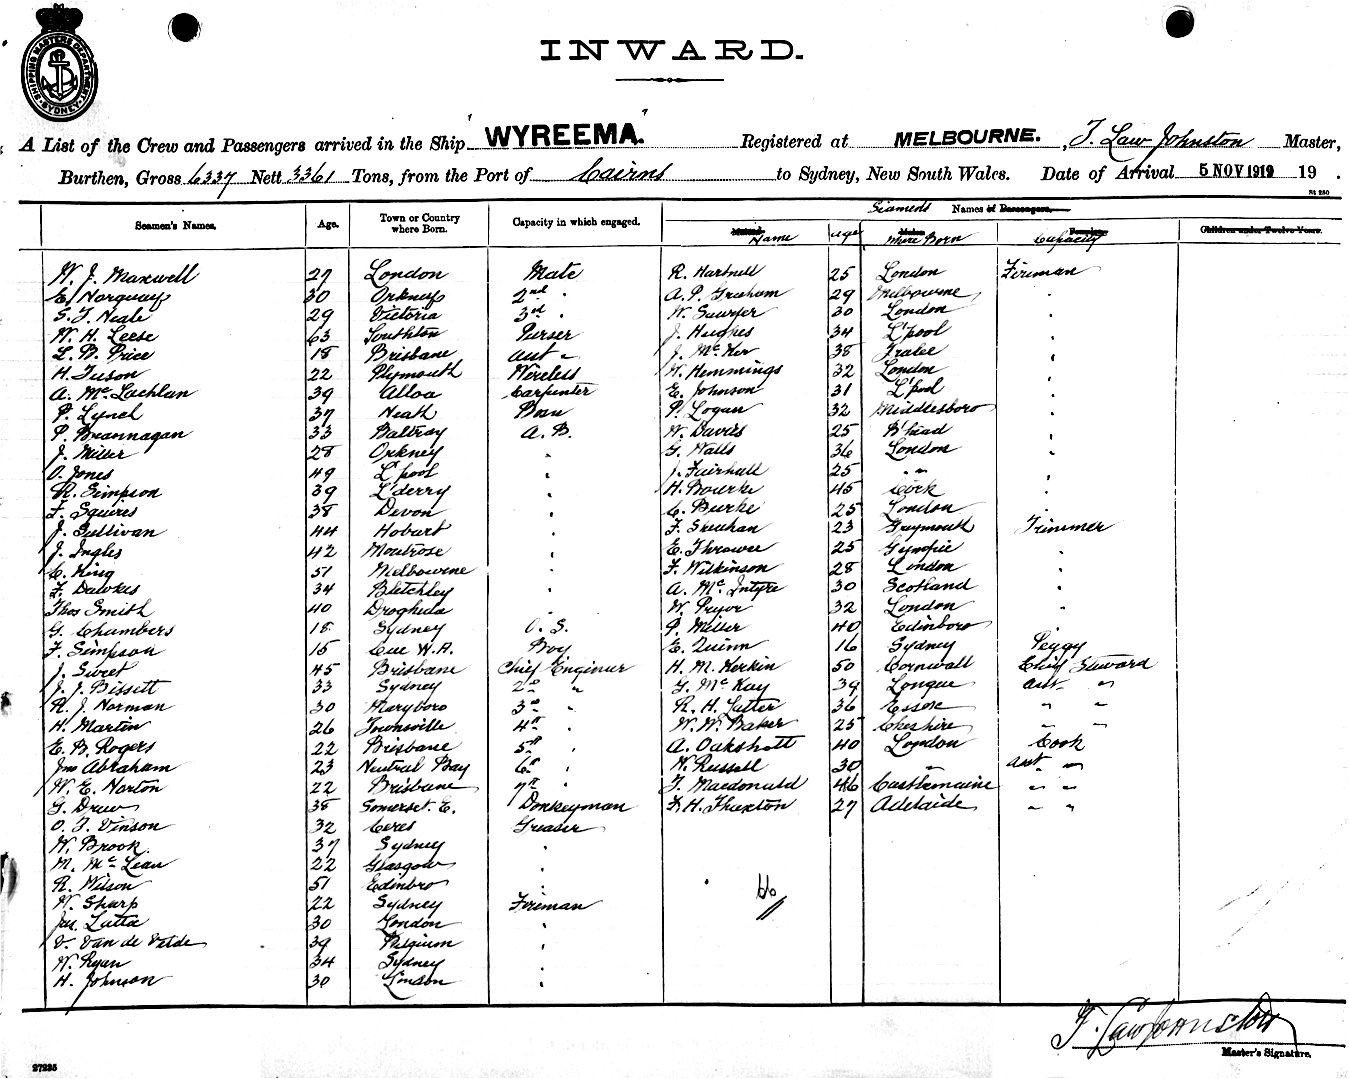 SHIPPING MASTERS DEPARTMENT SYDNEY
INWARD.
A List of the Crew and Passengers arrived in the Ship "WYREEMA" Registered at MELBOURNE. , F. Law Johnston Master,
Burthen, Gross 6337 Nett 3361 Tons, from the Port of Cairns to Sydney, New South Wales. Date of Arrival 5 NOV 1919 19 .
St 250
Seamens Names of Passengers.
Seamen's Names. Age. Town or Country where Born. Capacity in which engaged. Name age Where Born Capacity Children under Twelve Years.
W. J. Maxwell 27 London Mate R. Hartnell 25 London Fireman
E. Norquay 30 Orkney 2nd " A. P. Graham 29 Melbourne "
S. T. Neale 29 Victoria 3rd " W. Sawyer 30 London "
W. H. Leese 63 Southton Purser J. Hughes 34 L'pool "
L. B. Price 18 Brisbane asst " J. McKer 38 Tralee "
H. Tuson 22 Plymouth Wireless W. Hemmings 32 London "
A. McLachlan 39 Alloa Carpenter E. Johnson 31 L'pool "
P. Lynch 37 Neath Bosn P. Logan 32 Middlesboro "
P. Brannagan 33 Baltray A. B. W. Davies 25 B'head "
J. Miller 28 Orkney " G. Walls 36 London "
O. Jones 49 L'pool " J. Fairhall 25 " " "
R. Simpson 39 L'derry " H. Bourke 45 Cork "
F. Squires 38 Devon " C. Burke 25 London "
J. Sullivan 44 Hobart " F. Sheehan 23 Greymouth Trimmer
J. Ingles 42 Montrose " E. Thrower 25 Gympie "
C. King 51 Melbourne " F. Wilkinson 28 London "
F. Dawkes 34 Bletchley " A. McIntyre 30 Scotland "
Thos Smith 40 Drogheda " W. Pryor 32 London "
G. Chambers 18 Sydney O. S. P. Miller 40 Edinboro "
F. Simpson 15 Cue W.A. Boy E. Quinn 16 Sydney Peggy
J. Sweet 45 Brisbane Chief Engineer H. M. Kerkin 50 Cornwall Chief Steward
J. J. Bissett 33 Sydney 2nd " G. McKay 39 Longue asst "
R. J. Norman 30 Maryboro 3rd " R. H. Lutter 36 Essex " "
H. Martin 26 Townsville 4th " W. W. Baker 25 Cheshire " "
E. B. Rogers 22 Brisbane 5th " A. Oakshott 40 London Cook
Jno Abraham 23 Neutral Bay 6th " W. Russell 30 " Asst " "
W. E. Norton 22 Brisbane 7th " J. Macdonald 46 Castlemaine " "
G. Drew 38 Somerset. E. Donkeyman F. H. Thuxton 27 Adelaide " "
O. J. Vinson 32 Ceres Greaser
W. Brook 37 Sydney "
M. McLean 22 Glasgow "
R. Wilson 51 Edinbro "
W. Sharp 22 Sydney Fireman
Jas. Lutta 30 London "
V. Van de Velde 39 Belgium "
W. Ryan 34 Sydney "
H. Johnson 30 London "
F. Law Johnston
Master's Signature.
27235